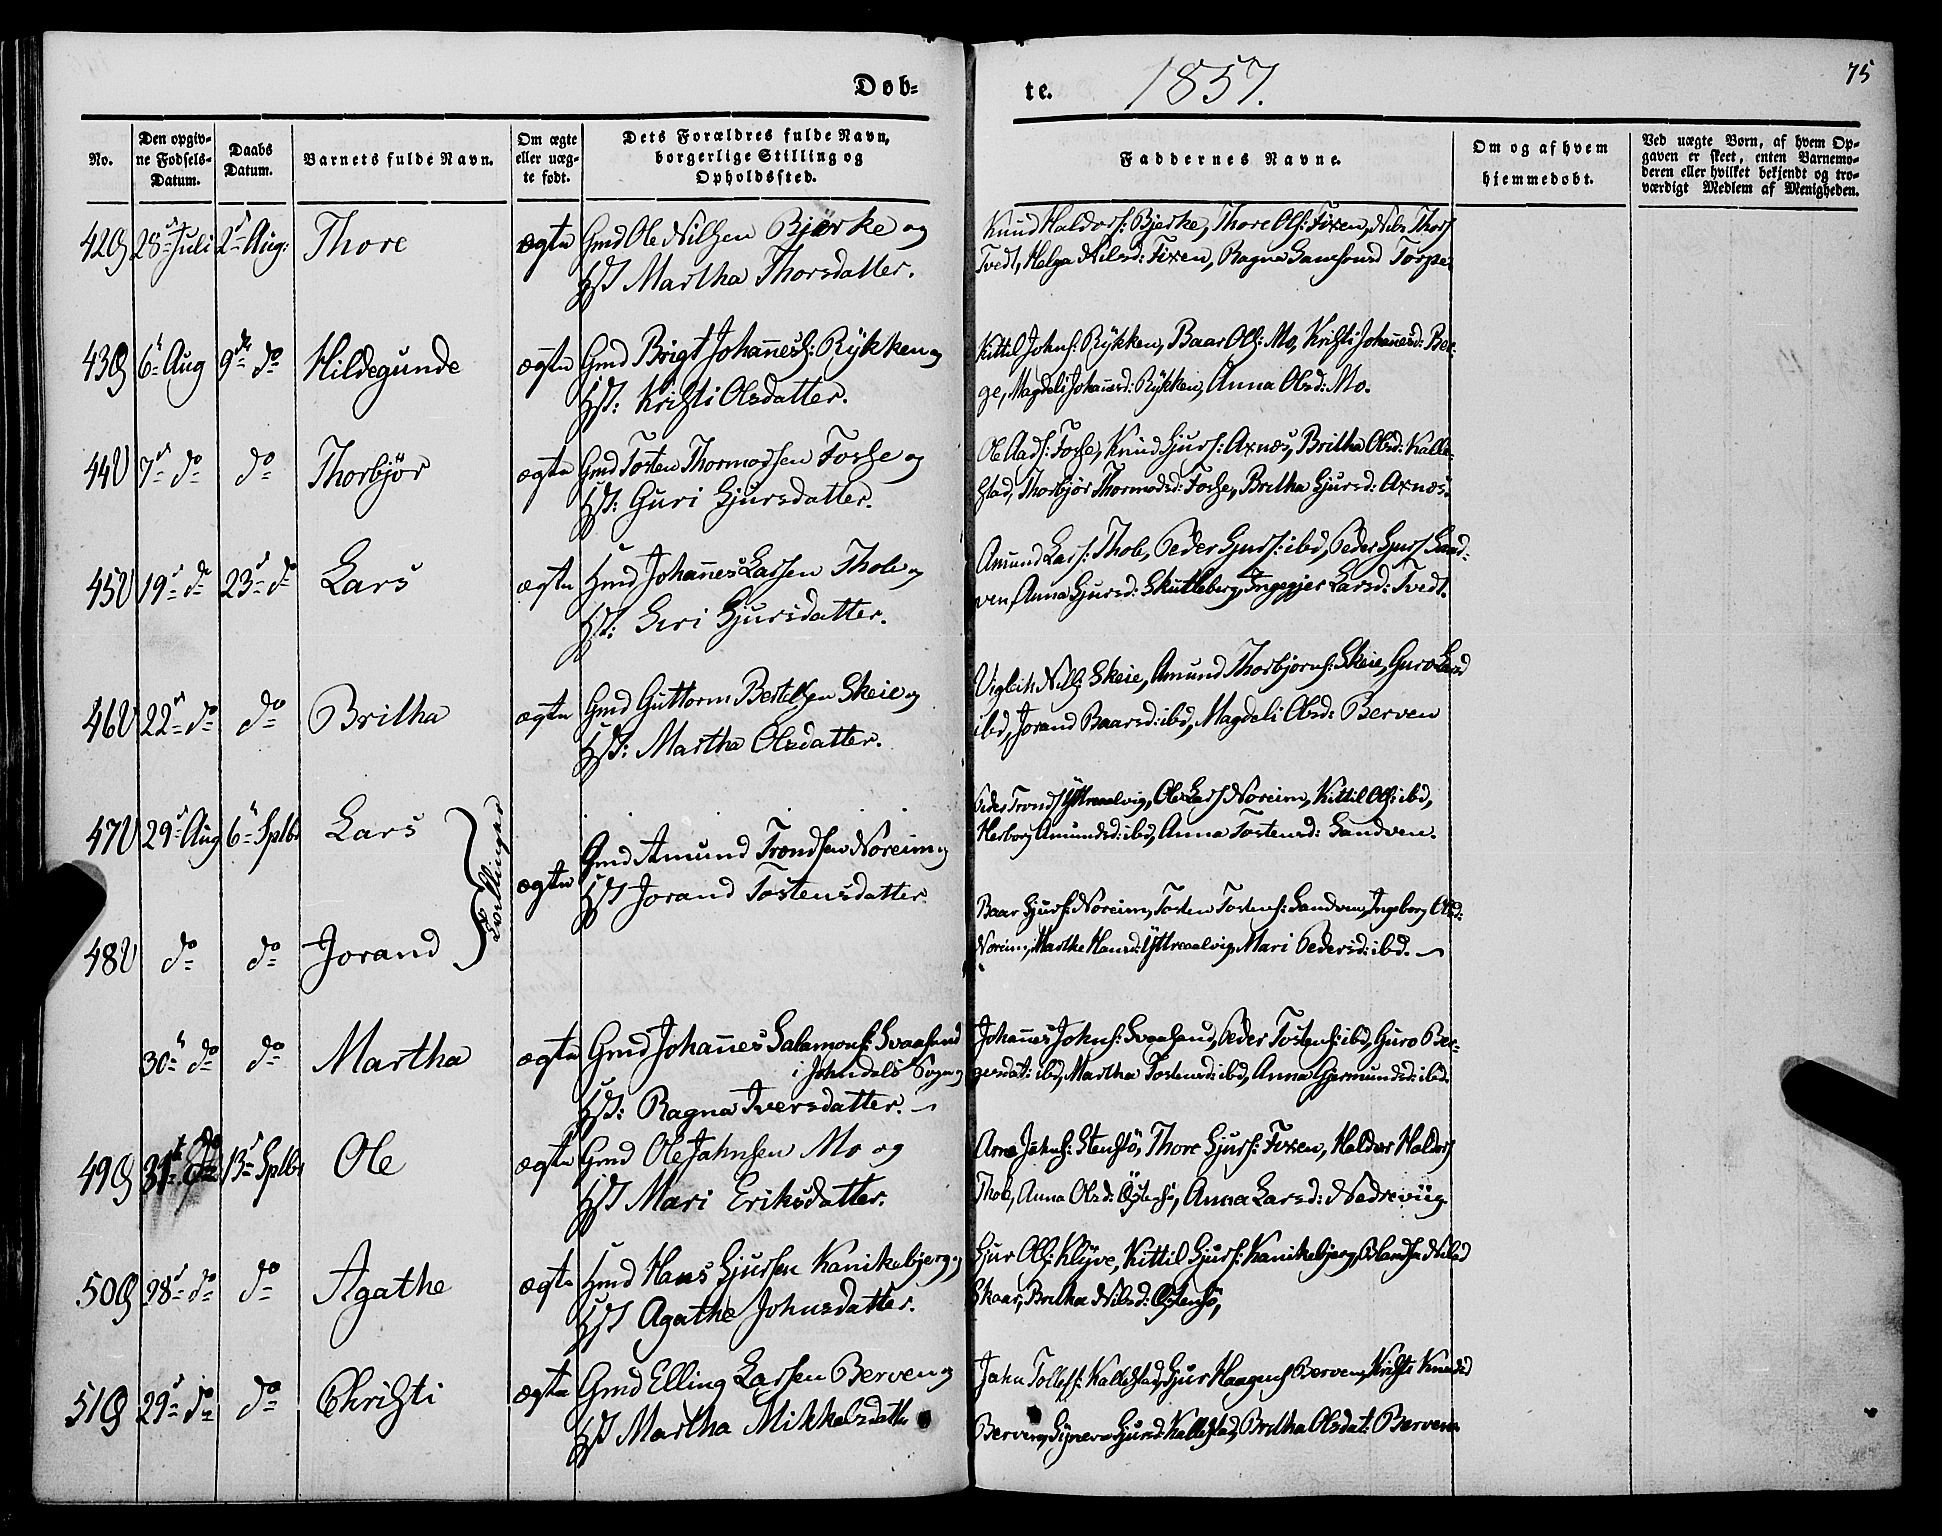 Døb-
te. 1857.
75
No.
Den opgiv-
ne Fødsels-
Datum.
Daabs
Datum.
Barnets fulde Navn.
Om ægte
eller uæg-
te født.
Dets Forældres fulde Navn,
borgerlige Stilling og
Opholdssted.
Faddernes Navne.
Om og af hvem
hjemmedøbt.
Ved uægte Børn, af hvem Op-
gaven er skeet, enten Barnemo-
deren eller hvilket bekjendt og tro-
værdigt Medlem af Menigheden.
42 28 Juli 2 Aug: Thore ægte Gmd Ole Nilsen Bjerke og
Hst Martha Thorsdatter.
Knud Haldors: Bjerke, Thore Ols: Fixen, Nils Thors
Tvedt, Helga Nilsd: Fixen, Ragna Samsonsd Torpe.
43 6 Aug 9 do Hildegunde ægte Gmd Brigt Johannes: Rykken og
Hst: Kristi Olsdatter.
Kittil Johns: Rykken, Baar Ols: Mo, Kristi Johannesd: Ber-
ge, Magdeli Johannsd: Rykken, Anna Olsd: Mo.
44 7 do do Thorbjør ægte Gmd Tosten Thormodsen Fosse og
Hst: Guri Sjursdatter.
Ole Aads: Fosse, Knud Sjurs: Axnæs, Britha Olsd: Kalle-
stad, Thorbjør Thormodsd: Fosse, Britha Sjursd: Axnæs.
45 19 do 23 do Lars ægte Hmd Johannes Larsen Thole og
Hst: Siri Sjursdatter.
Amund Lars: Thole, Peder Sjurs: ibd, Peder Sjurs Sand-
ven, Anna Sjursd: Skutleberg, Ingegjer Larsd: Tvedt.
46 22 do do Britha ægte Gmd Guttorm Bertelsen Skeie og
Hst: Martha Olsdatter.
Vigleik Nils: Skeie, Amund Thorbjørns: Skeie, Guro Larsd
ibd, Jorand Baarsd: ibd, Magdeli Olsd: Berven
47 29 Aug 6 Sptbr Lars
Tvillinger
ægte Gmd Amund Trondsen Noreim og
Hst Jorand Tostensdatter.
Peder Tronds Yttreaalvig, Ole Lars Noreim, Kittil Ols: ibd,
Herborg Amundsd: ibd, Anna Tostensd: Sandven.
48 do do Jorand
Baar Sjurs: Noreim, Tosten Tostens: Sandven, Ingeborg Olsd:
Noreim, Marthe Hansd: Yttreaalvig, Mari Pedersd: ibd.
30 do do Martha ægte Gmd Johannes Salamons: Svaasand
i Jondals Sogn og
Hst: Ragna Iversdatter.
Johannes Johns: Svaasand, Peder Tostens: ibd, Guro Ber-
gesdat: ibd, Martha Tostensd: ibd, Anna Germundsd: ibd.
49 31 do 13 Sptbr Ole ægte Gmd Ole Jahnsen Mo og
Hst Mari Eriksdatter.
Arne Jahns: Stensø, Thore Sjurs: Fixen, Haldor Haldors
Thole, Anna Olsd: Østensø, Anna Larsd: Nedreviig.
50 28 do do Agathe ægte Hmd Hans Sjursen Kanikebjerg og
Hst Agathe Johnsdatter.
Sjur Ols: Klyve, Kittil Sjurs: Kanikebjerg, Nilsd
Skaar, Britha Nilsd: Østensø,
51 29 do do Christi ægte Gmd Elling Larsen Berven og
Hst Martha Mikkelsdatter
Jahn Tollefs: Kallestad, Sjur Haagens Berven, Kristi Knudsd
Berven, Signe Sjursd: Kallestad, Britha Olsdat: Berven.